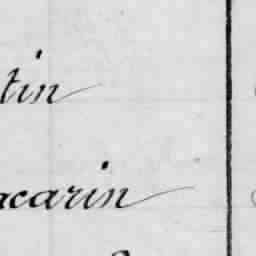 tin
acarin